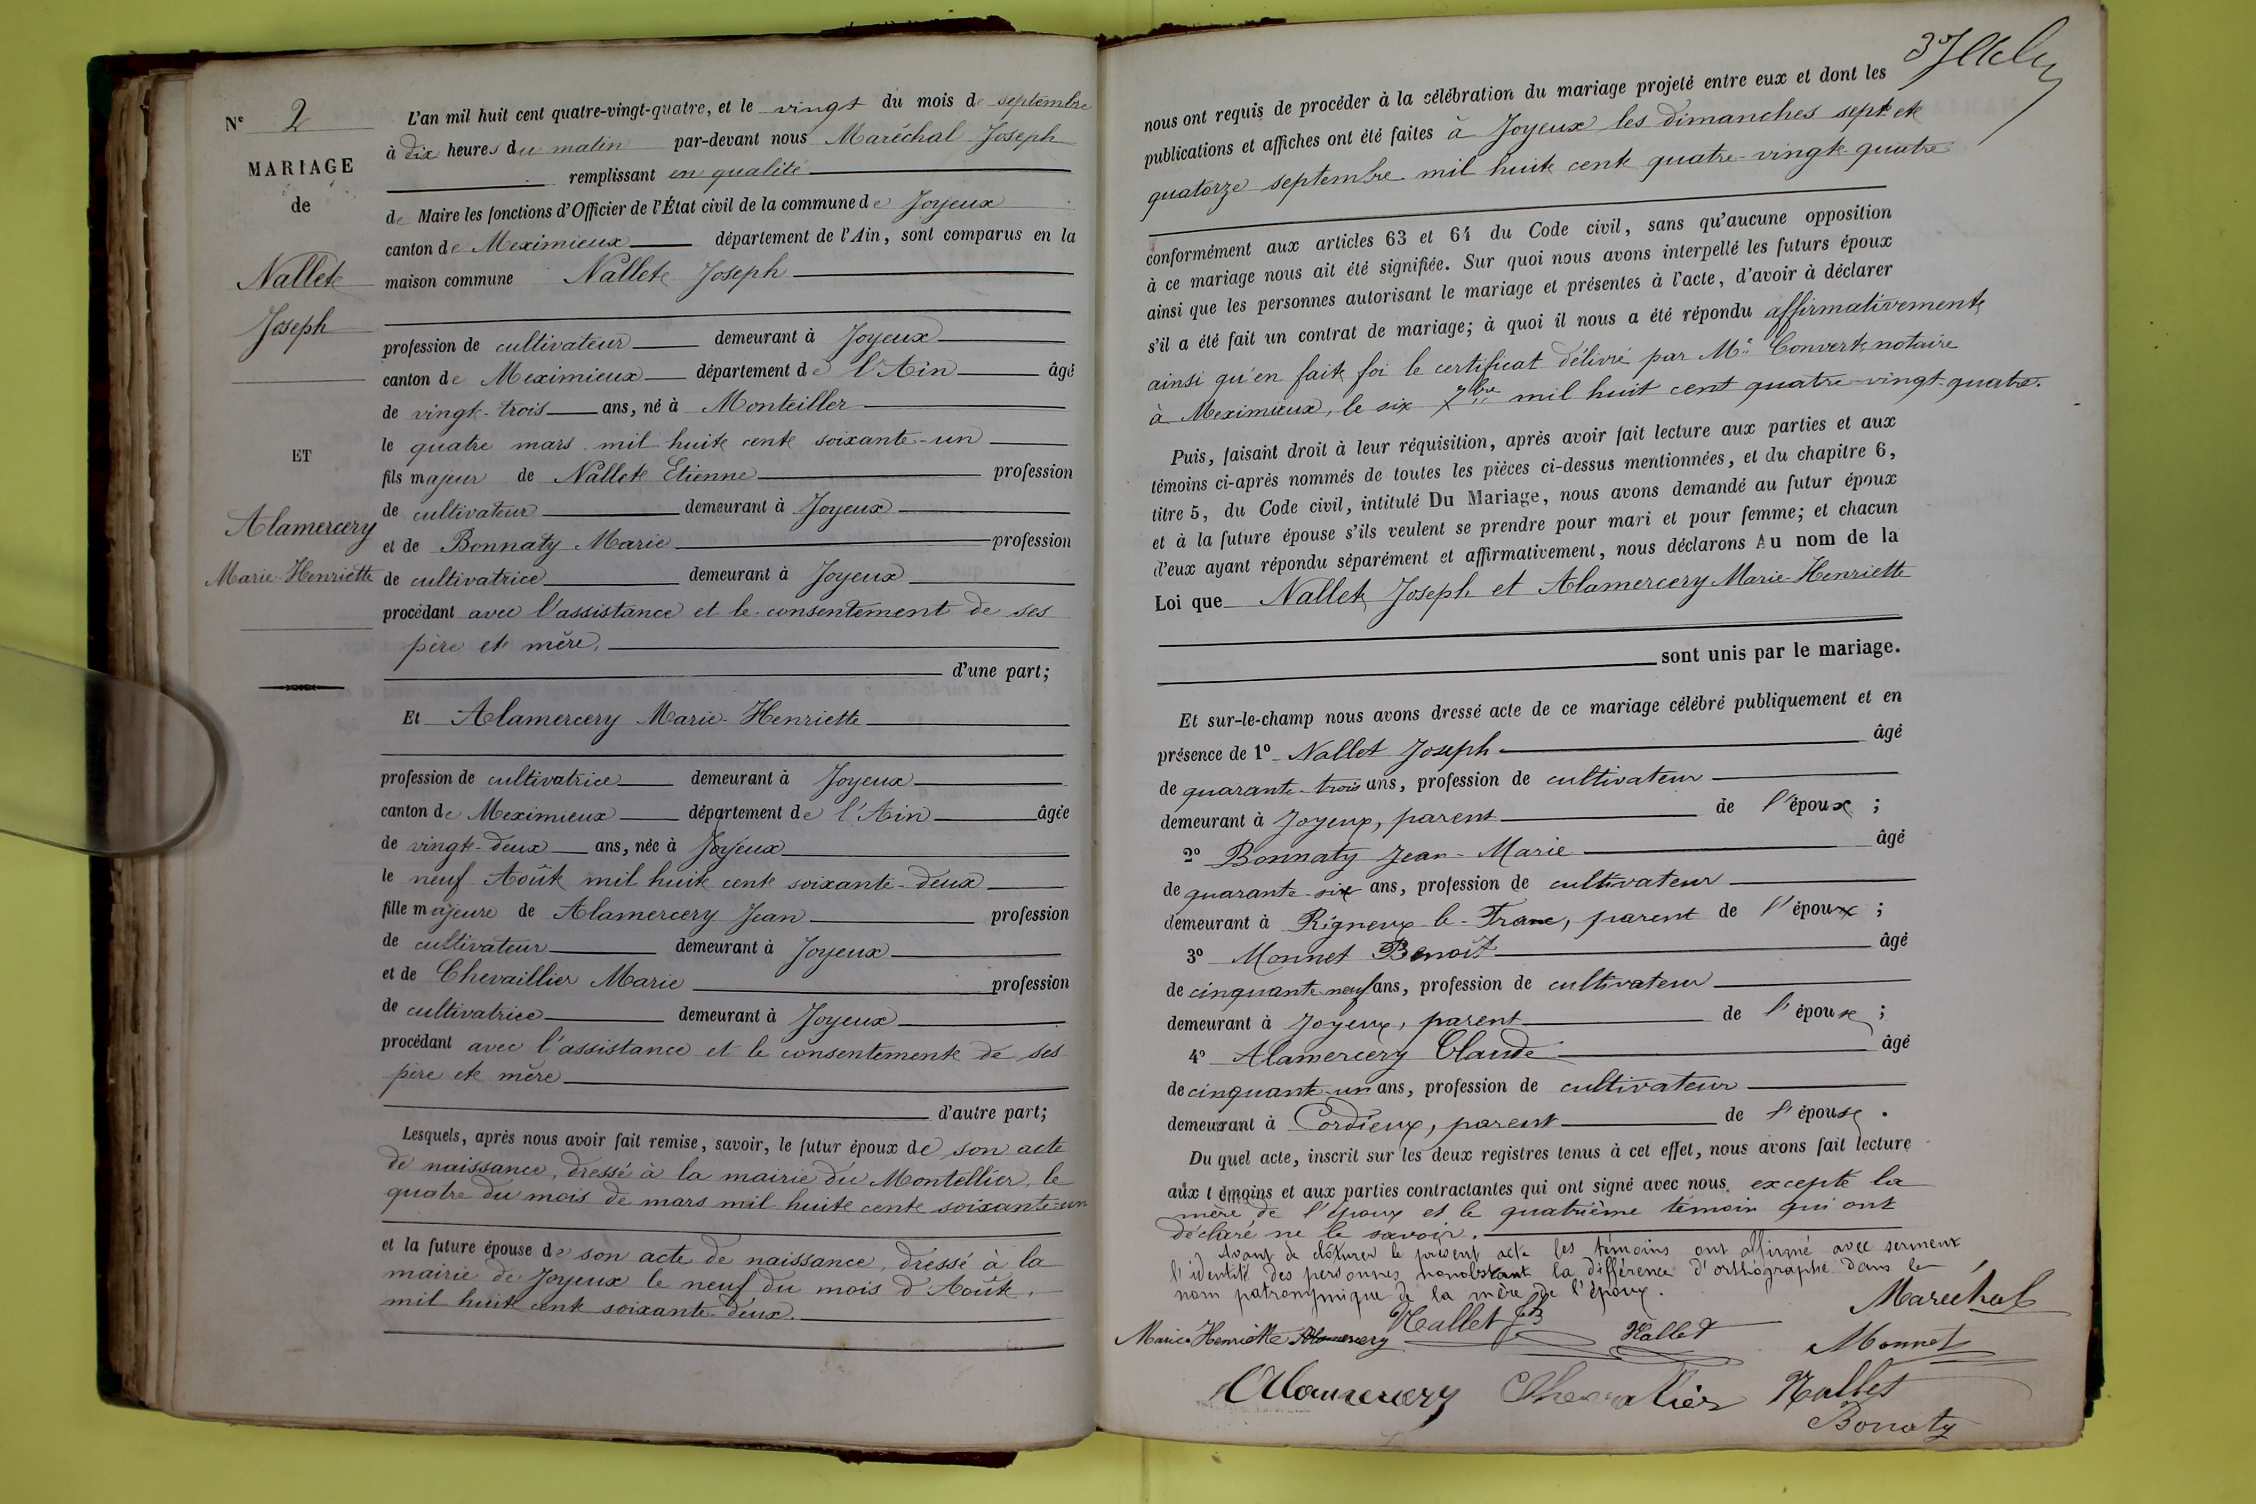 Nº 2
MARIAGE
de
Nallet
Joseph
ET
Alamercery
Marie-Henriette
L'an mil huit cent quatre-vingt-quatre, et le vingt du mois de septembre
à dix heures du matin par-devant nous Maréchal Joseph
remplissant en qualité
de Maire les fonctions d'Officier de l'État civil de la commune de Joyeux
canton de Meximieux département de l'Ain, sont comparus en la
maison commune Nallet Joseph
profession de cultivateur demeurant à Joyeux
canton de Meximieux département de l'Ain âgé
de vingt-trois ans, né à Monteiller
le quatre mars mil huit cent soixante-un
fils majeur de Nallet Etienne profession
de cultivateur demeurant à Joyeux
et de Bonnaty Marie profession
de cultivatrice demeurant à Joyeux
procédant avec l'assistance et le consentement de ses
père et mère.
d'une part;
Et Alamercery Marie-Henriette
profession de cultivatrice demeurant à Joyeux
canton de Meximieux département de l'Ain âgée
de vingt-deux ans, née à Joyeux
le neuf Août mil huit cent soixante-deux
fille majeure de Alamercery Jean profession
de cultivateur demeurant à Joyeux
et de Chevaillier Marie profession
de cultivatrice demeurant à Joyeux
procédant avec l'assistance et le consentement de ses
père et mère
d'autre part;
Lesquels, après nous avoir fait remise, savoir, le futur époux de son acte
de naissance, dressé à la mairie du Montellier, le
quatre du mois de mars mil huit cent soixante-un
et la future épouse de son acte de naissance, dressé à la
mairie de Joyeux le neuf du mois d'Août,
mil huit cent soixante-deux.
nous ont requis de procéder à la célébration du mariage projeté entre eux et dont les
publications et affiches ont été faites à Joyeux les dimanches sept et
quatorze septembre mil huit cent quatre-vingt-quatre
conformément aux articles 63 et 64 du Code civil, sans qu'aucune opposition
à ce mariage nous ait été signifiée. Sur quoi nous avons interpellé les futurs époux
ainsi que les personnes autorisant le mariage et présentes à l'acte, d'avoir à déclarer
s'il a été fait un contrat de mariage; à quoi il nous a été répondu affirmativement,
ainsi qu'en fait foi le certificat délivré par Me Convert, notaire
à Meximieux, le six 7bre mil huit cent quatre-vingt-quatre.
Puis, faisant droit à leur réquisition, après avoir fait lecture aux parties et aux
témoins ci-après nommés de toutes les pièces ci-dessus mentionnées, et du chapitre 6,
titre 5, du Code civil, intitulé Du Mariage, nous avons demandé au futur époux
et à la future épouse s'ils veulent se prendre pour mari et pour femme; et chacun
d'eux ayant répondu séparément et affirmativement, nous déclarons Au nom de la
Loi que Nallet Joseph et Alamercery Marie-Henriette
sont unis par le mariage.
Et sur-le-champ nous avons dressé acte de ce mariage célébré publiquement et en
présence de 1º Nallet Joseph âgé
de quarante-trois ans, profession de cultivateur
demeurant à Joyeux, parent de l'époux ;
2º Bonnaty Jean-Marie âgé
de quarante-six ans, profession de cultivateur
demeurant à Rigneux-le-Franc, parent de l'époux ;
3º Monnet Benoît âgé
de cinquante-neuf ans, profession de cultivateur
demeurant à Joyeux, parent de l'épouse ;
4º Alamercery Claude âgé
de cinquante-un ans, profession de cultivateur
demeurant à Cordieux, parent de l'épouse.
Du quel acte, inscrit sur les deux registres tenus à cet effet, nous avons fait lecture
aux témoins et aux parties contractantes qui ont signé avec nous, excepté la
mère de l'époux et le quatrième témoin qui ont
déclaré ne le savoir.
Avant de clôturer le présent acte les témoins ont affirmé avec serment
l'identité des personnes nonobstant la différence d'orthographe dans le
nom patronymique de la mère de l'époux.
Maréchal
Marie Henriette Alamercery Nallet Nallet Monnet
Alamercery Chevallier Nallet
Bonaty